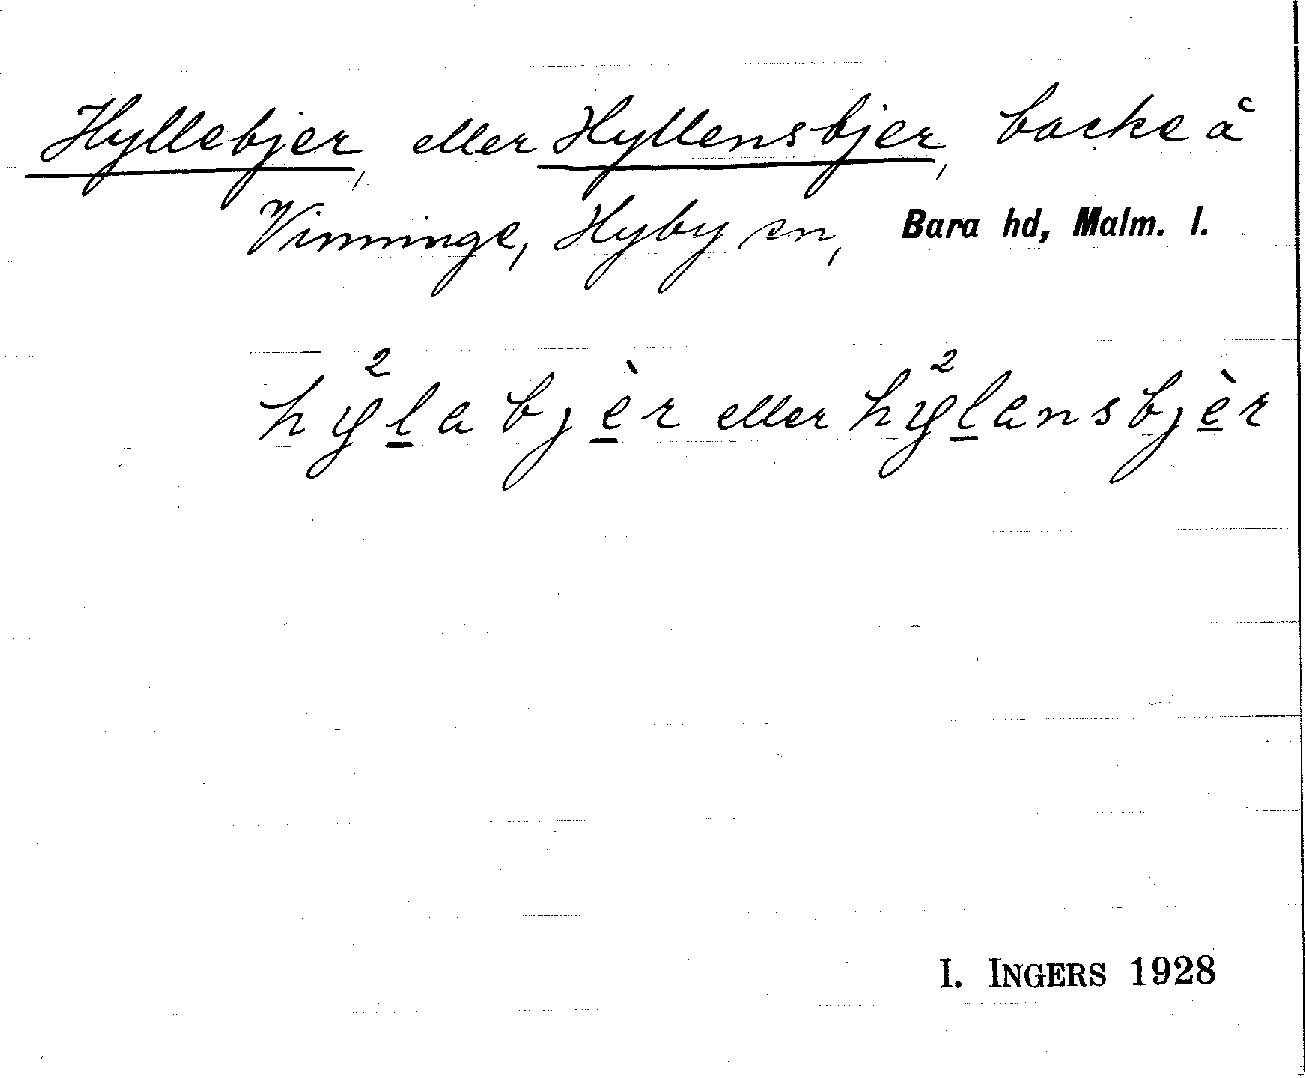 Hyllebjer, eller Hyllensbjer, backe å
Vinninge, Hyby sn, Bara hd, Malm. l.
hy²l̲abjè̲r eller hy²l̲ansbjè̲r
I. INGERS 1928